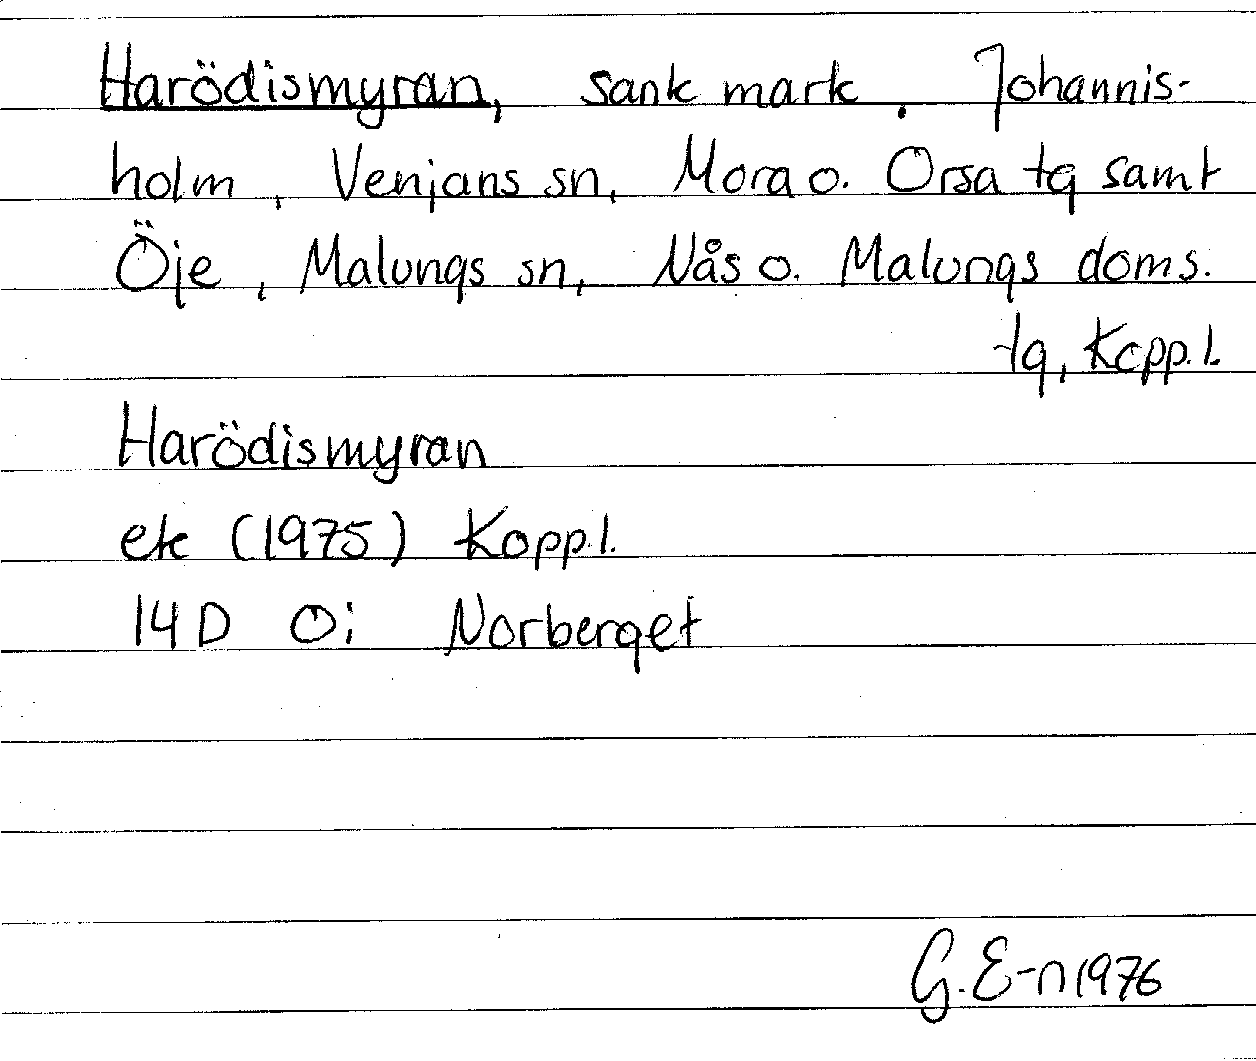 Harödismyran, sank mark. Johannis-
holm, Venjans sn, Mora o. Orsa tg samt
Öje, Malungs sn, Nås o. Malungs doms.
tg, Kopp.l.
Harödismyran
ek (1975) Kopp.l.
14 D 0i Norberget
G. E-n 1976